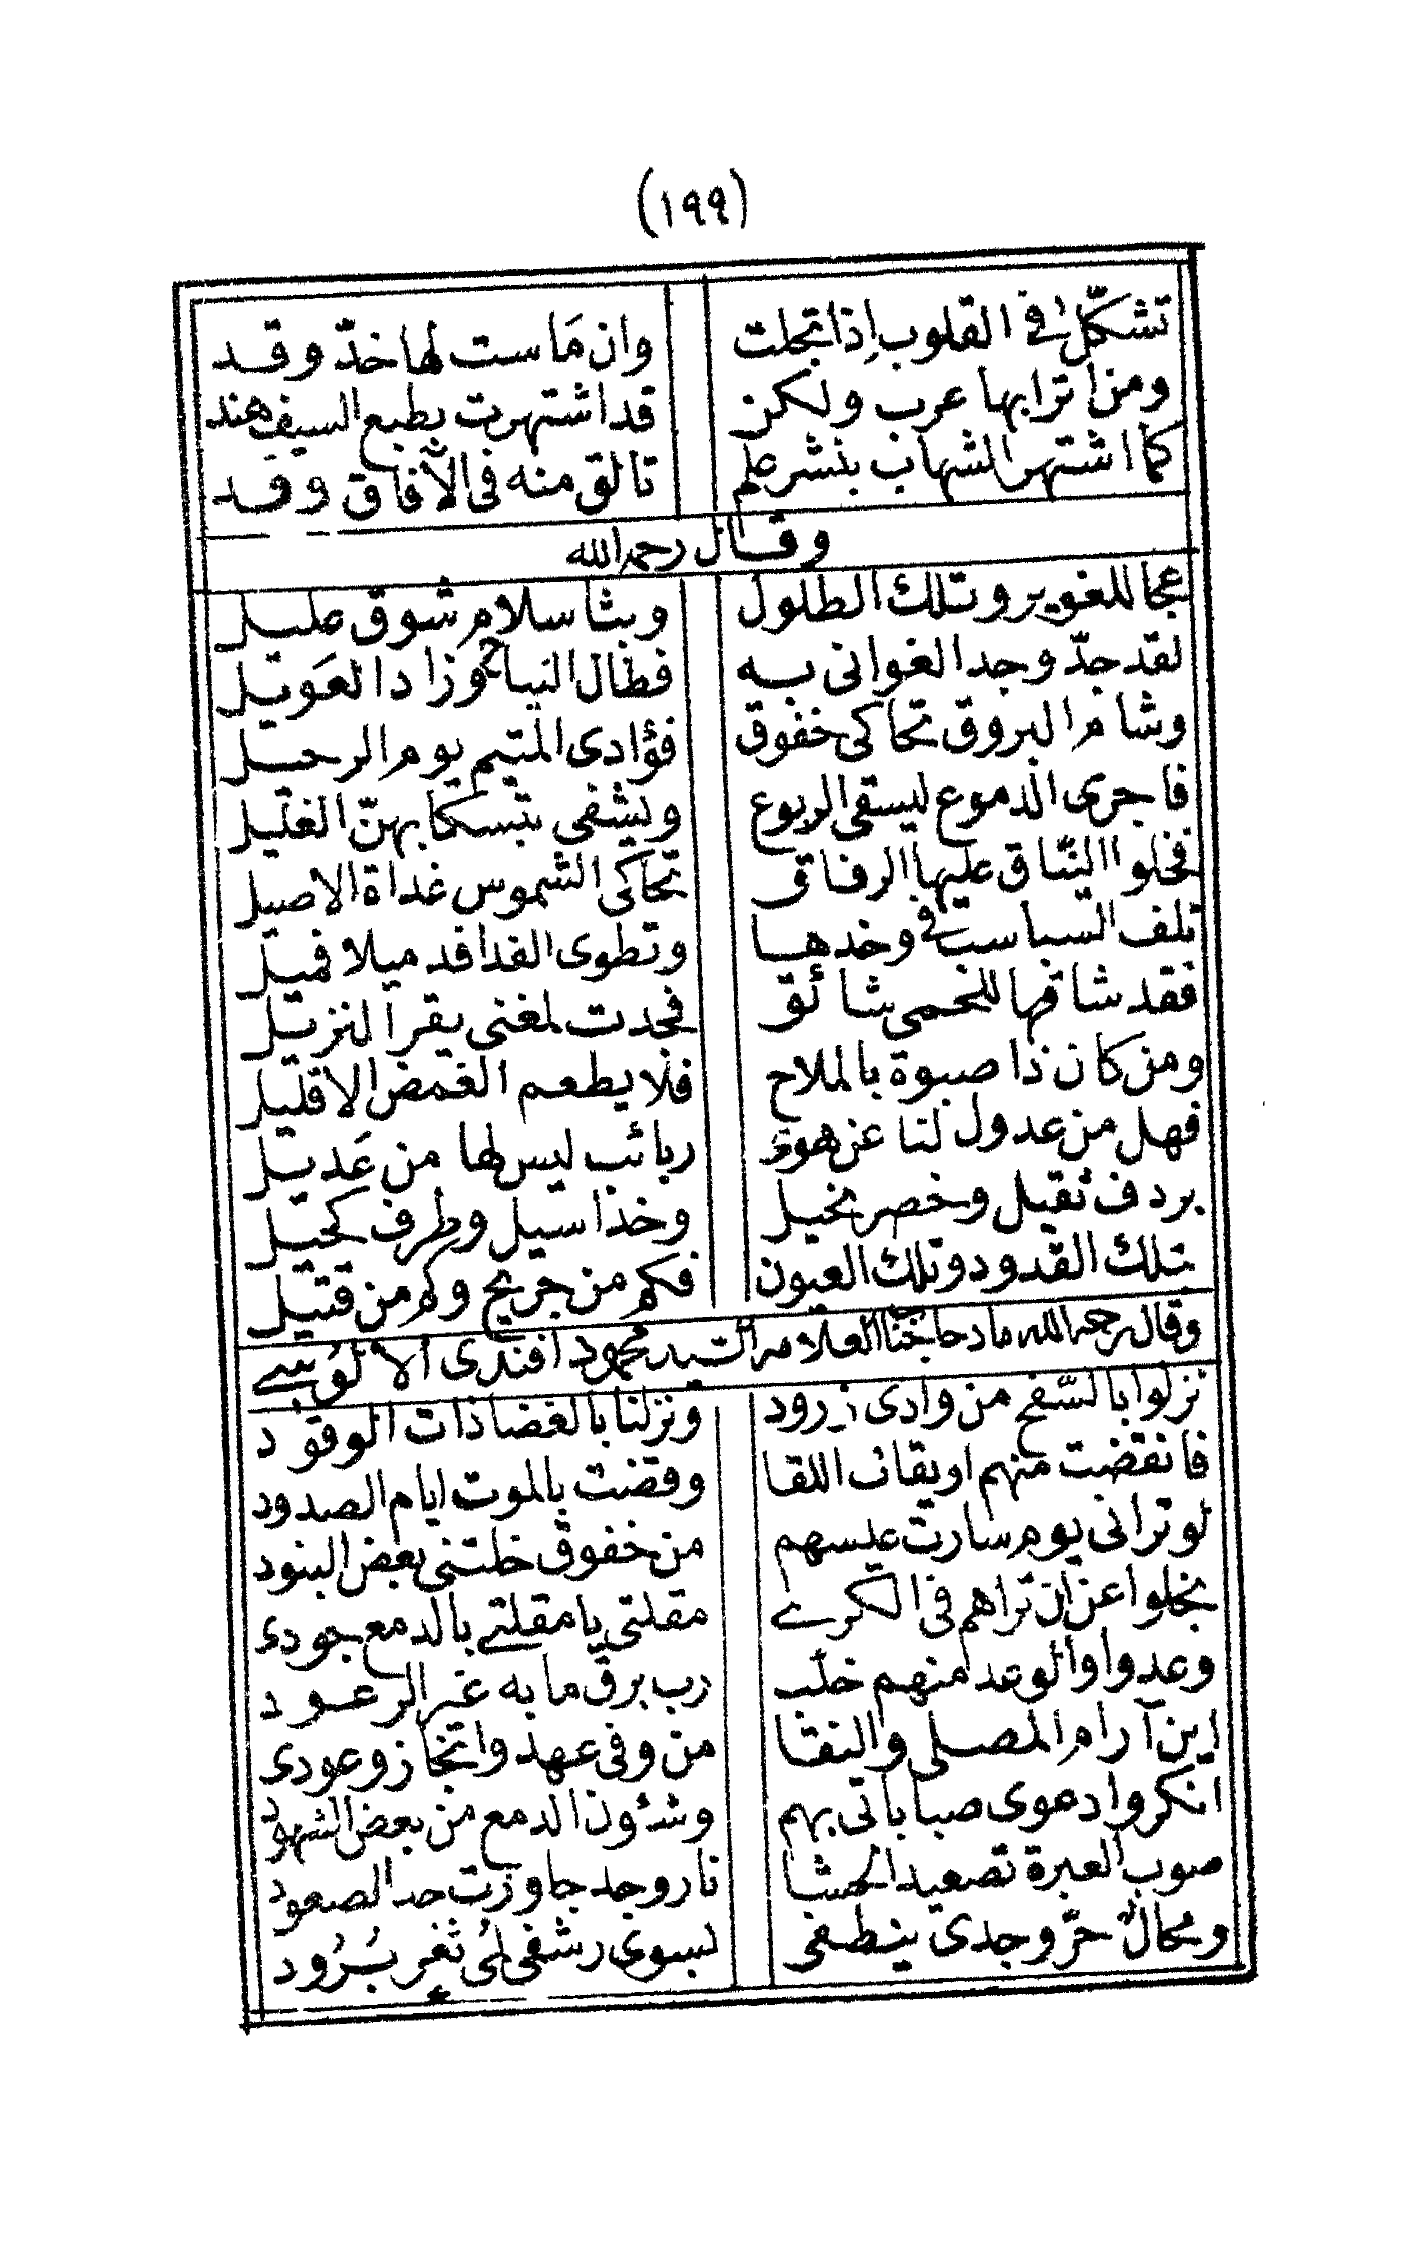 (١٩٩)
تشكّل في القلوب إذا تجلت وان مَاست لها خدّ وقد
ومن اترابها عرب ولكن قد اشتهرت بطبع السيف هند
كما اشتهر الشهاب بنشر علم تالق منه فى الآفاق وقد
وقال رحمه الله
عجا للغوير وتلك الطلول وبثا سلام شوق عليل
لقد جدّ وجد الغوانى به فطال النياح وزاد العَويل
وشام البروق تحاكى خفوق فؤادى المتيم يوم الرحيل
فاجرى الدموع ليسقى الربوع ويشفى بتسكابهنّ الغليل
فخلوا النياق عليها الرفاق تحاكى الشموس غداة الاصيل
تلف السباسب فى وخدها وتطوى الفدافد ميلا فميل
فقد شاقها للحمى شائق فجدت لمغنى بقرا لنزيل
ومن كان ذا صبوة بالملاح فلا يطعم الغمض الا قليل
فهل من عدول لنا عن هوى ربائب ليس لها من عَديل
بردف ثقيل وخصر نحيل وخذ اسيل وطرف كحيل
بتلك القدود وتلك العيون فكم من جريح وكم من قتيل
وقال رحمه الله مادحا جناب العلامه السيد محمود افندى الالوسي
نزلوا بالسّفح من وادى زرود ونزلنا بالغضا ذات الوقود
فانقضت منهم اويقات اللقا وقضت بالموت ايام الصدود
لو ترانى يوم سارت عيسهم من خفوق خلتنى بعض البنود
بخلوا عن ان تراهم فى الكرى مقلتى يا مقلتى بالدمع جودى
وعدوا والوعد منهم خلّب رب برق ما به غير الرعود
اين آرام المصلى والنقا من وفى عهد وانجاز وعودى
انكروا دعوى صباباتى بهم وشئون الدمع من بعض الشهود
صوب العبرة تصعيد الحشا نار وجد جاوزت حد الصعود
ومحال حرّ وجدى ينطفى لسوى رشفى لمى ثغر بَرُود